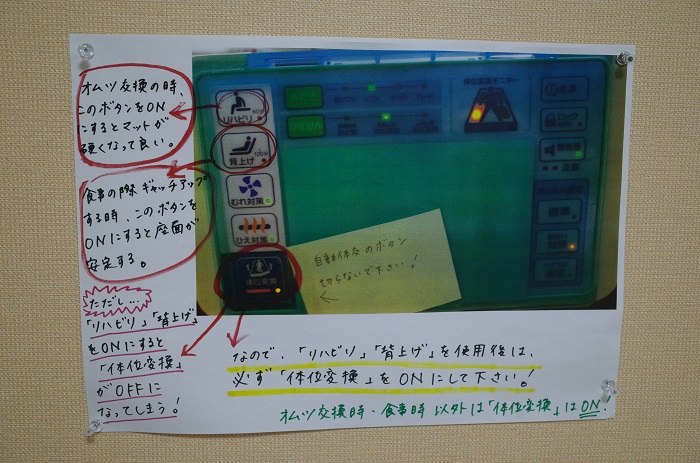 オムツ交換の時、
このボタンをON
にするとマットが
硬くなって良い。
食事の際ギャッチアップ
する時、このボタンを
ONにすると座面が
安定する。
ただし…
「リハビリ」「背上げ」
をONにすると
「体位変換」
がOFFに
なってしまう!
リハビリ
背上げ
むれ対策
ひえ対策
体位変換
自動体交のボタン
切らないで下さい!
体位変換モニター
ロック
標準
なので、「リハビリ」「背上げ」を使用後は、
必ず「体位変換」をONにして下さい!
オムツ交換時・食事時以外は「体位変換」はON!